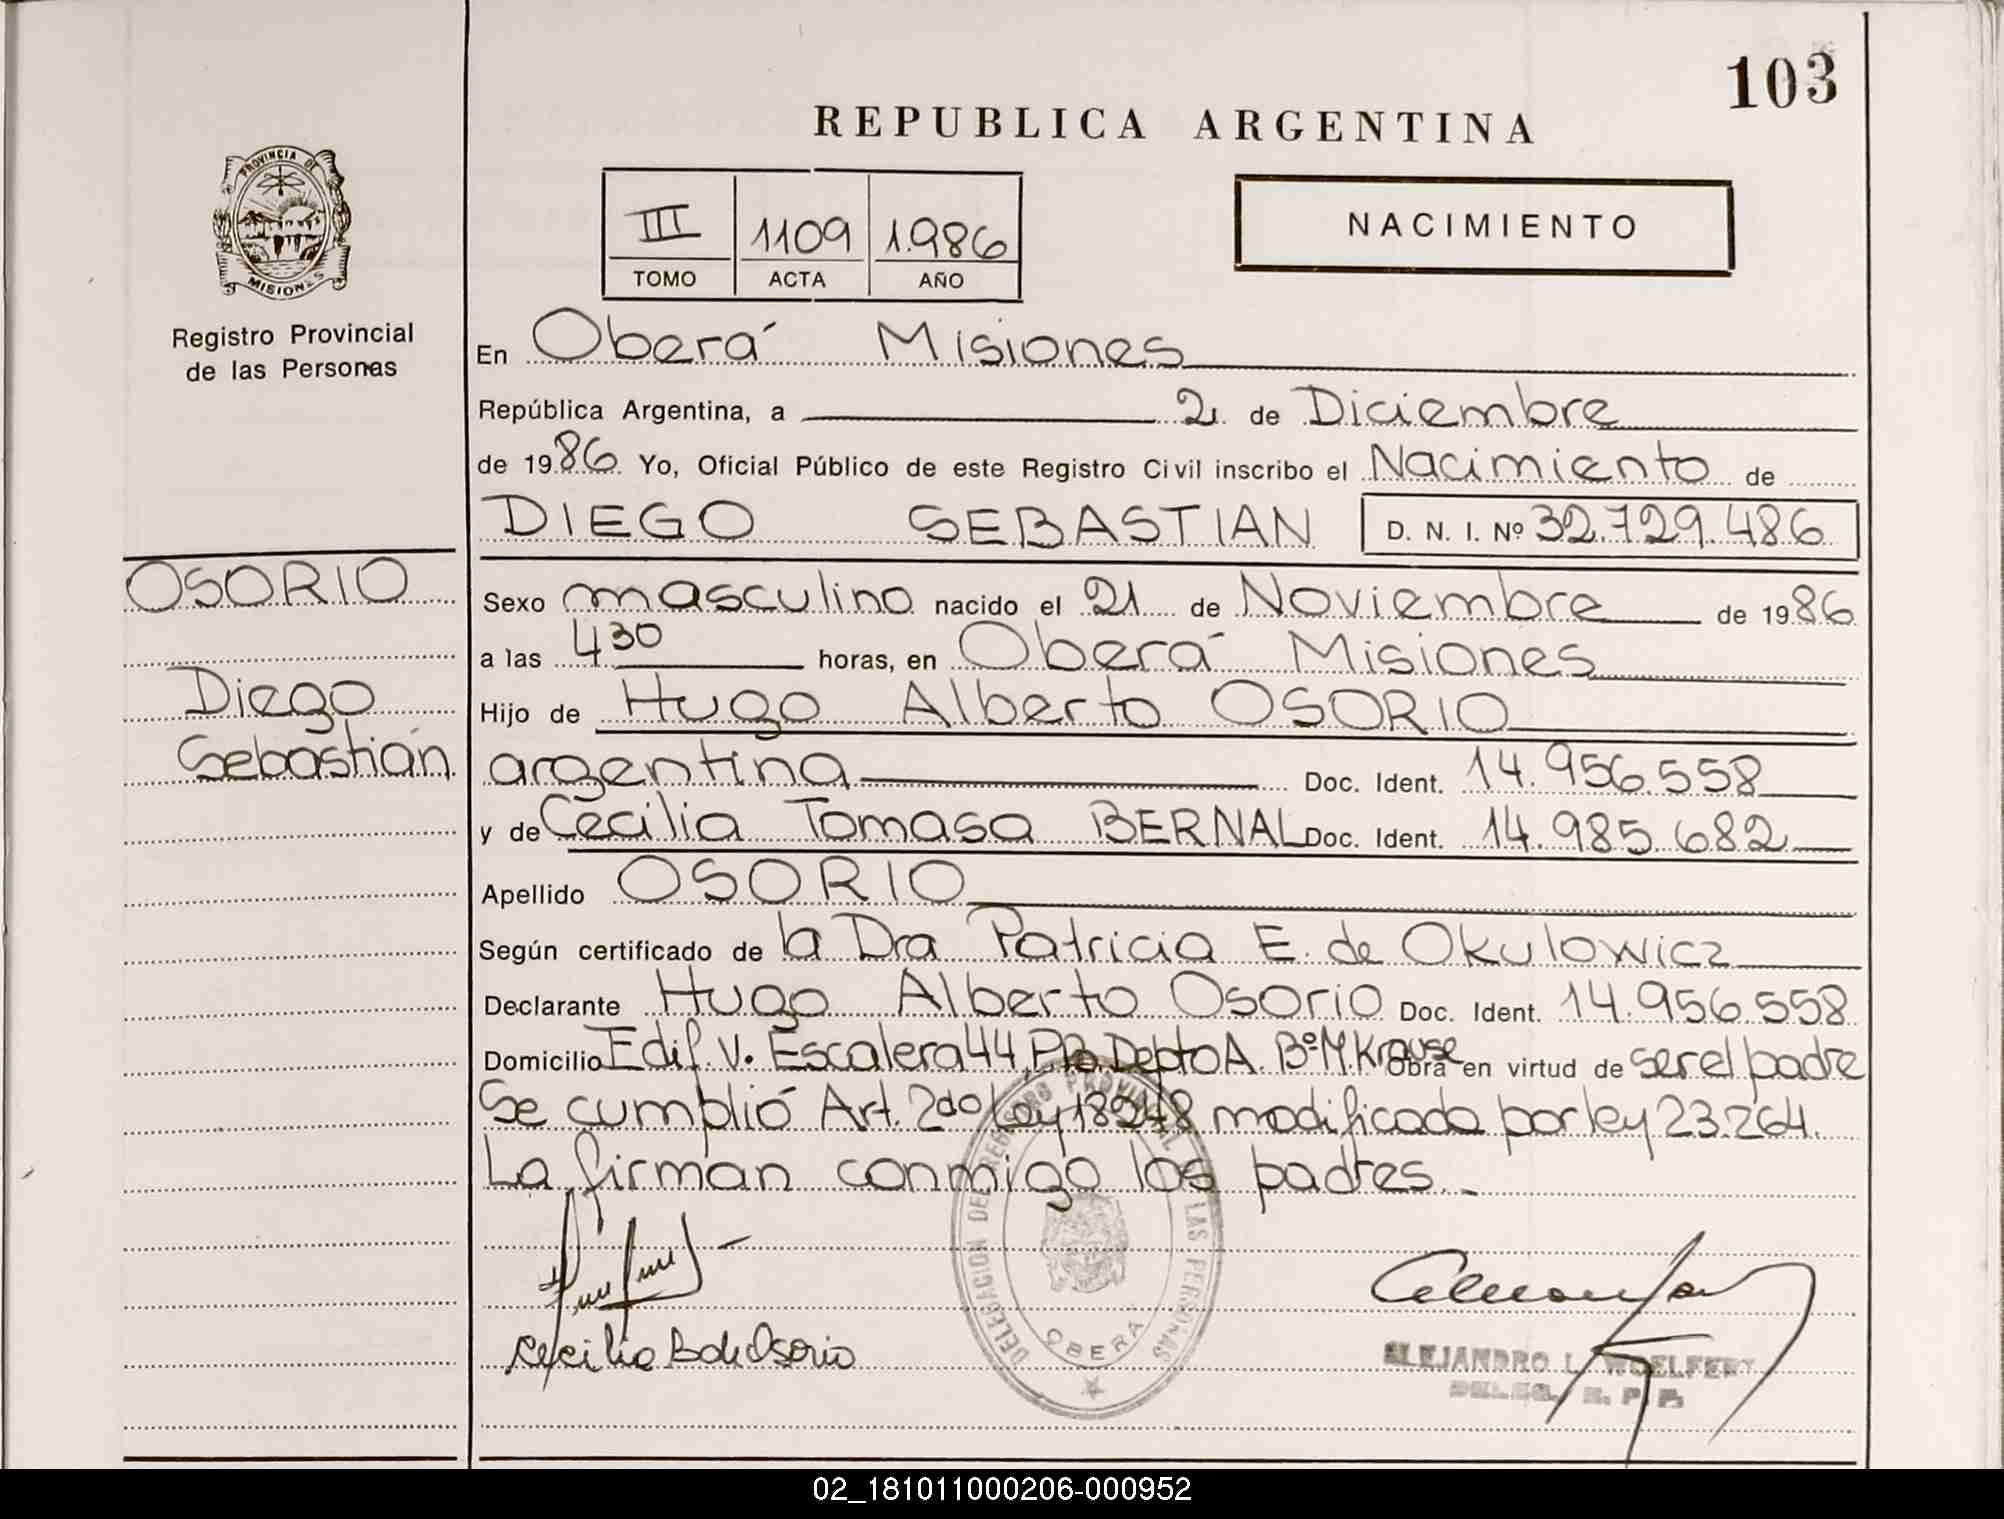 103
REPUBLICA ARGENTINA
PROVINCIA DE
MISIONES
Registro Provincial
de las Personas
III 1109 1.986
TOMO ACTA AÑO
NACIMIENTO
En Oberá Misiones
República Argentina, a 2 de Diciembre
de 1986 Yo, Oficial Público de este Registro Civil inscribo el Nacimiento de
DIEGO SEBASTIAN D. N. I. Nº 32.729.486
OSORIO
Diego
Sebastián
Sexo masculino nacido el 21 de Noviembre de 1986
a las 4 30 horas, en Oberá Misiones
Hijo de Hugo Alberto OSORIO
argentina Doc. Ident. 14.956.558
y de Cecilia Tomasa BERNAL Doc. Ident. 14.985.682
Apellido OSORIO
Según certificado de la Dra Patricia E. de Okulowicz
Declarante Hugo Alberto Osorio Doc. Ident. 14.956.558
Domicilio Edif. V. Escalera 44, PB. Depto A. Bº M. Krause Obra en virtud de ser el padre
Se cumplió Art. 2do Ley 18248 modificada por ley 23.264.
La firman conmigo los padres.-
DELEGACION DEL REGISTRO PROVINCIAL DE LAS PERSONAS
OBERA
Cecilia B de Osorio
ALEJANDRO L. WOELFERT
DELEG. R. P. P.
02_181011000206-000952